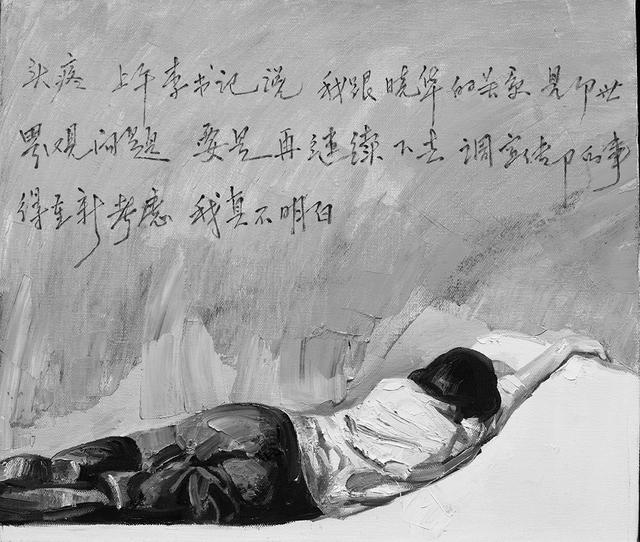 头疼 上午李书记说 我跟晓华的关系是个世
界观问题 要是再继续下去 调宣传部的事
得重新考虑 我真不明白